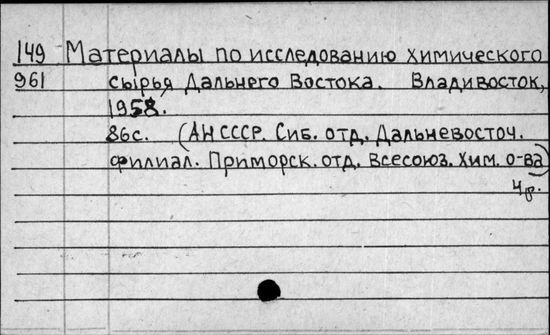 149 Материалы по исследованию химического
961 сырья Дальнего Востока. Владивосток,
1958.
86с. (АН СССР. Сиб. отд. Дальневосточ.
филиал. Приморск. отд. Всесоюз. хим. о-ва)
4р.